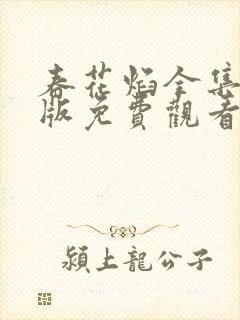 春花焰全集
版免費觀看
潁上龍公子